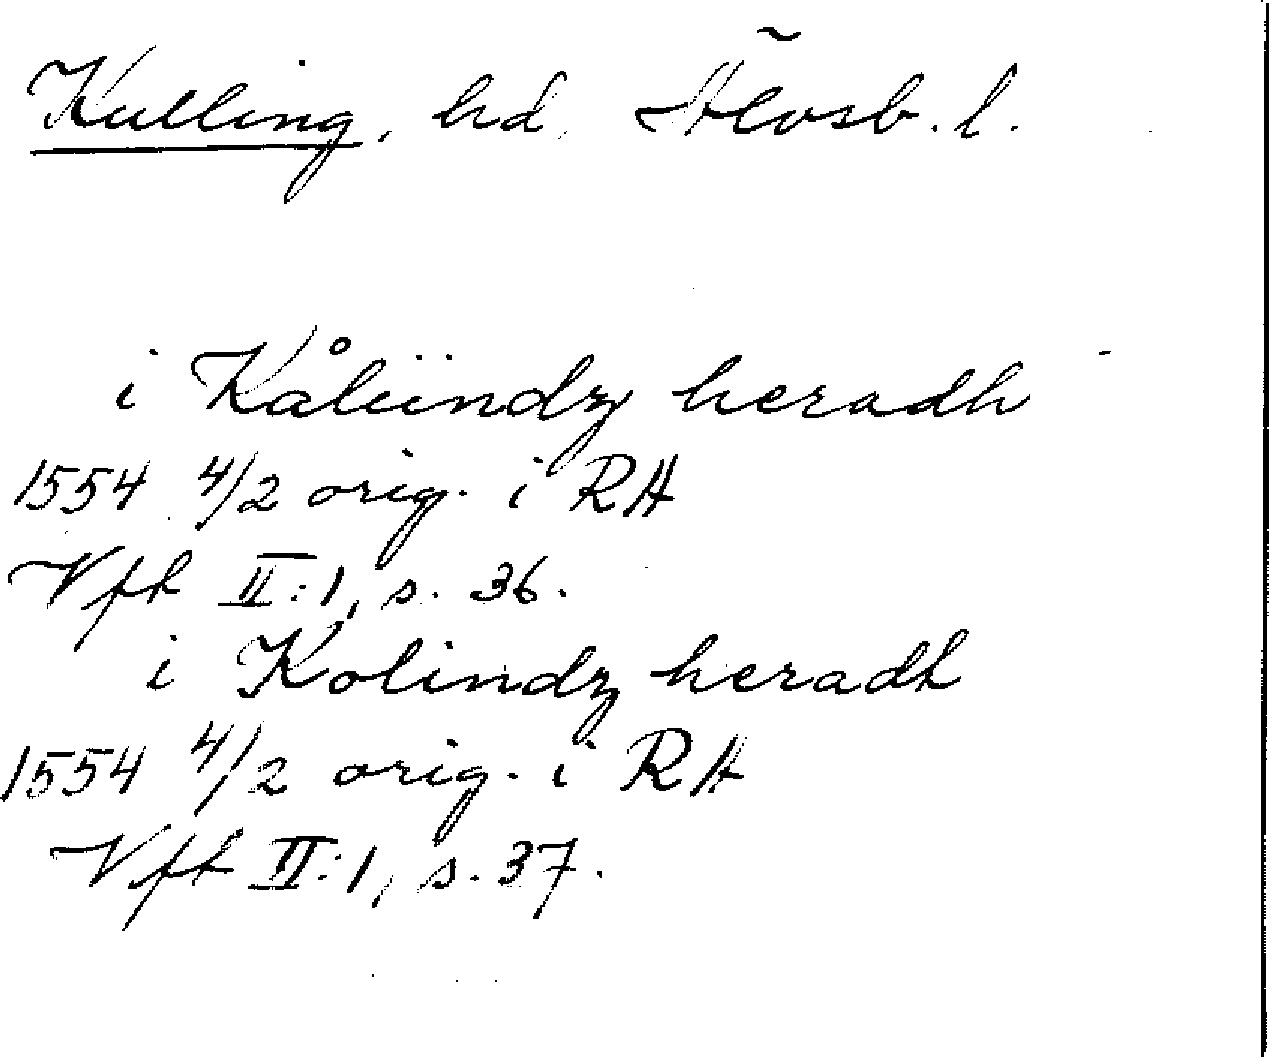 Kulling, hd, Älvsb. l.
i Kåliindz heradh
1554 4/2 orig. i RH
Vfk II:1, s. 36.
i Kolindz heradh
1554 4/2 orig. i RH
Vfk II:1, s. 37.